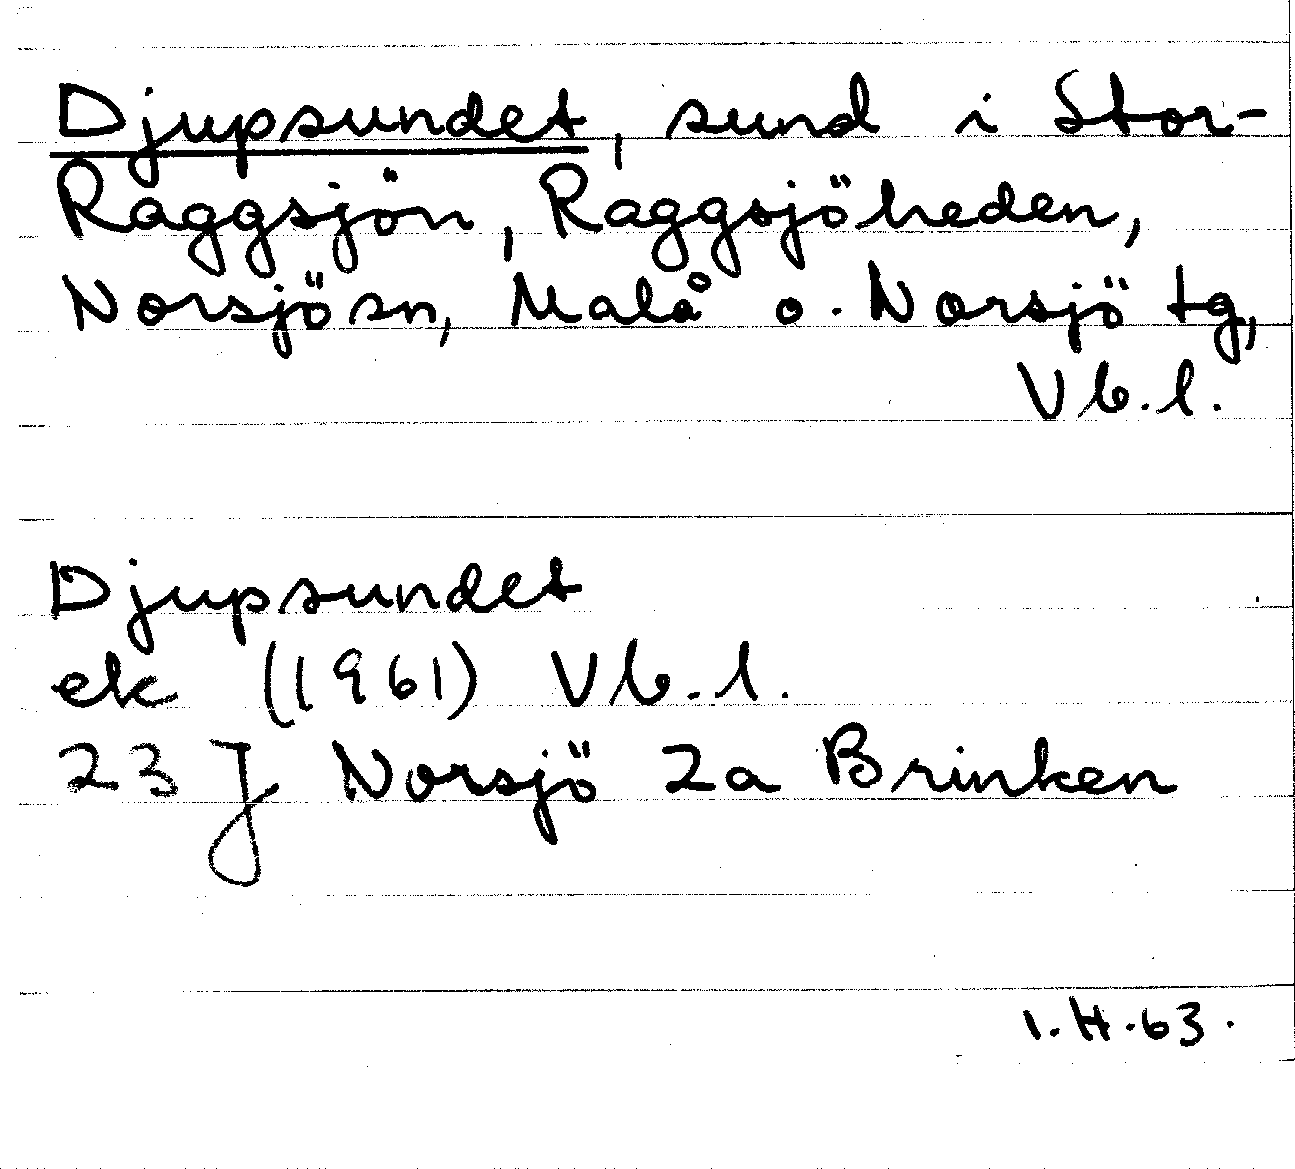 Djupsundet, sund i Stor-
Raggsjön, Raggsjöheden,
Norsjö sn, Malå o. Norsjö tg,
Vb.l.
Djupsundet
ek (1961) Vb.l.
23 J Norsjö 2a Brinken
I.H.63.